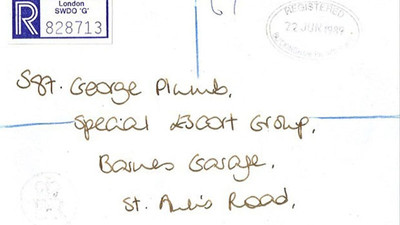 London
SWDO 'G'
R 828713
REGISTERED
22 JUN 1989
Sgt. George Plumb,
Special Escort Group,
Barnes Garage,
St. Road,